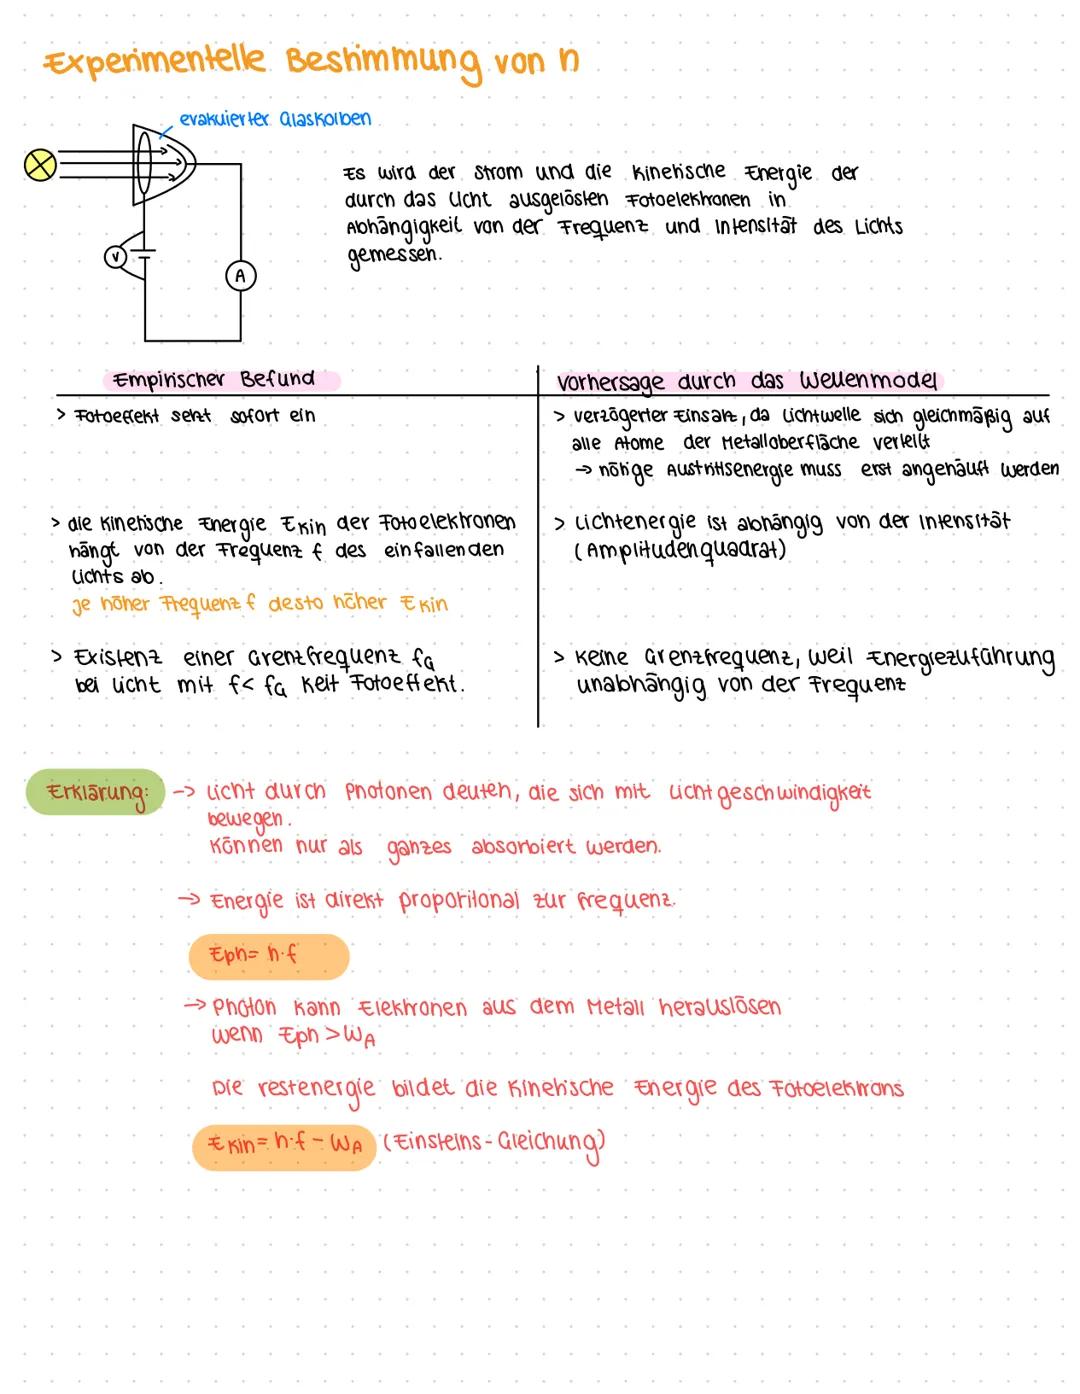 Experimentelle Bestimmung von h
evakuierter Glaskolben
Es wird der Strom und die kinetische Energie der
durch das Licht ausgelösten Fotoelektronen in
Abhängigkeit von der Frequenz und Intensität des Lichts
gemessen.
V
A
Empirischer Befund
Vorhersage durch das Wellenmodel
> Fotoeffekt setzt sofort ein
> verzögerter Einsatz, da Lichtwelle sich gleichmäßig auf
alle Atome der Metalloberfläche verteilt
→ nötige Austrittsenergie muss erst angehäuft werden
> die kinetische Energie Ekin der Fotoelektronen
hängt von der Frequenz f des einfallenden
Lichts ab.
je höher Frequenz f desto höher Ekin
> Lichtenergie ist abhängig von der Intensität
(Amplitudenquadrat)
> Existenz einer Grenzfrequenz fG
bei Licht mit f< fG keit Fotoeffekt.
> keine Grenzfrequenz, weil Energiezuführung
unabhängig von der Frequenz
Erklärung:
-> Licht durch Photonen deuten, die sich mit Lichtgeschwindigkeit
bewegen.
Können nur als ganzes absorbiert werden.
→ Energie ist direkt proportional zur frequenz.
Eph= h·f
→ Photon kann Elektronen aus dem Metall herauslösen
wenn Eph >WA
Die restenergie bildet die kinetische Energie des Fotoelektrons
Ekin= h·f - WA (Einsteins-Gleichung)